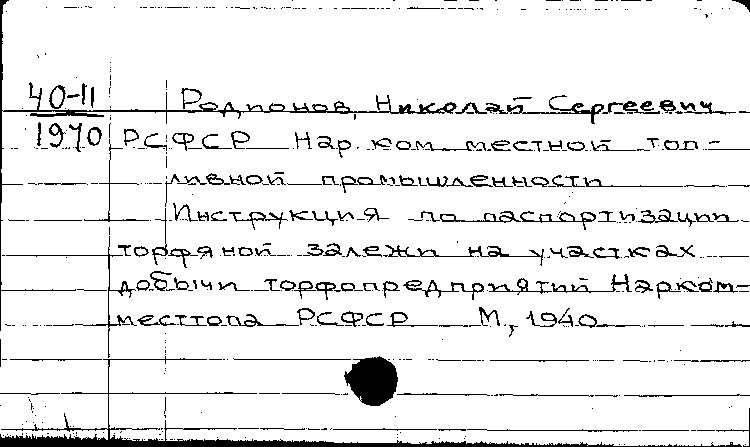 40-11
1970
Родионов, Николай Сергеевич
РСФСР Нар. ком. местной топ-
ливной промышленности
Инструкция по паспортизации
торфяной залежи на участках
добычи торфопредприятий Нарком-
месттопа РСФСР М., 1940